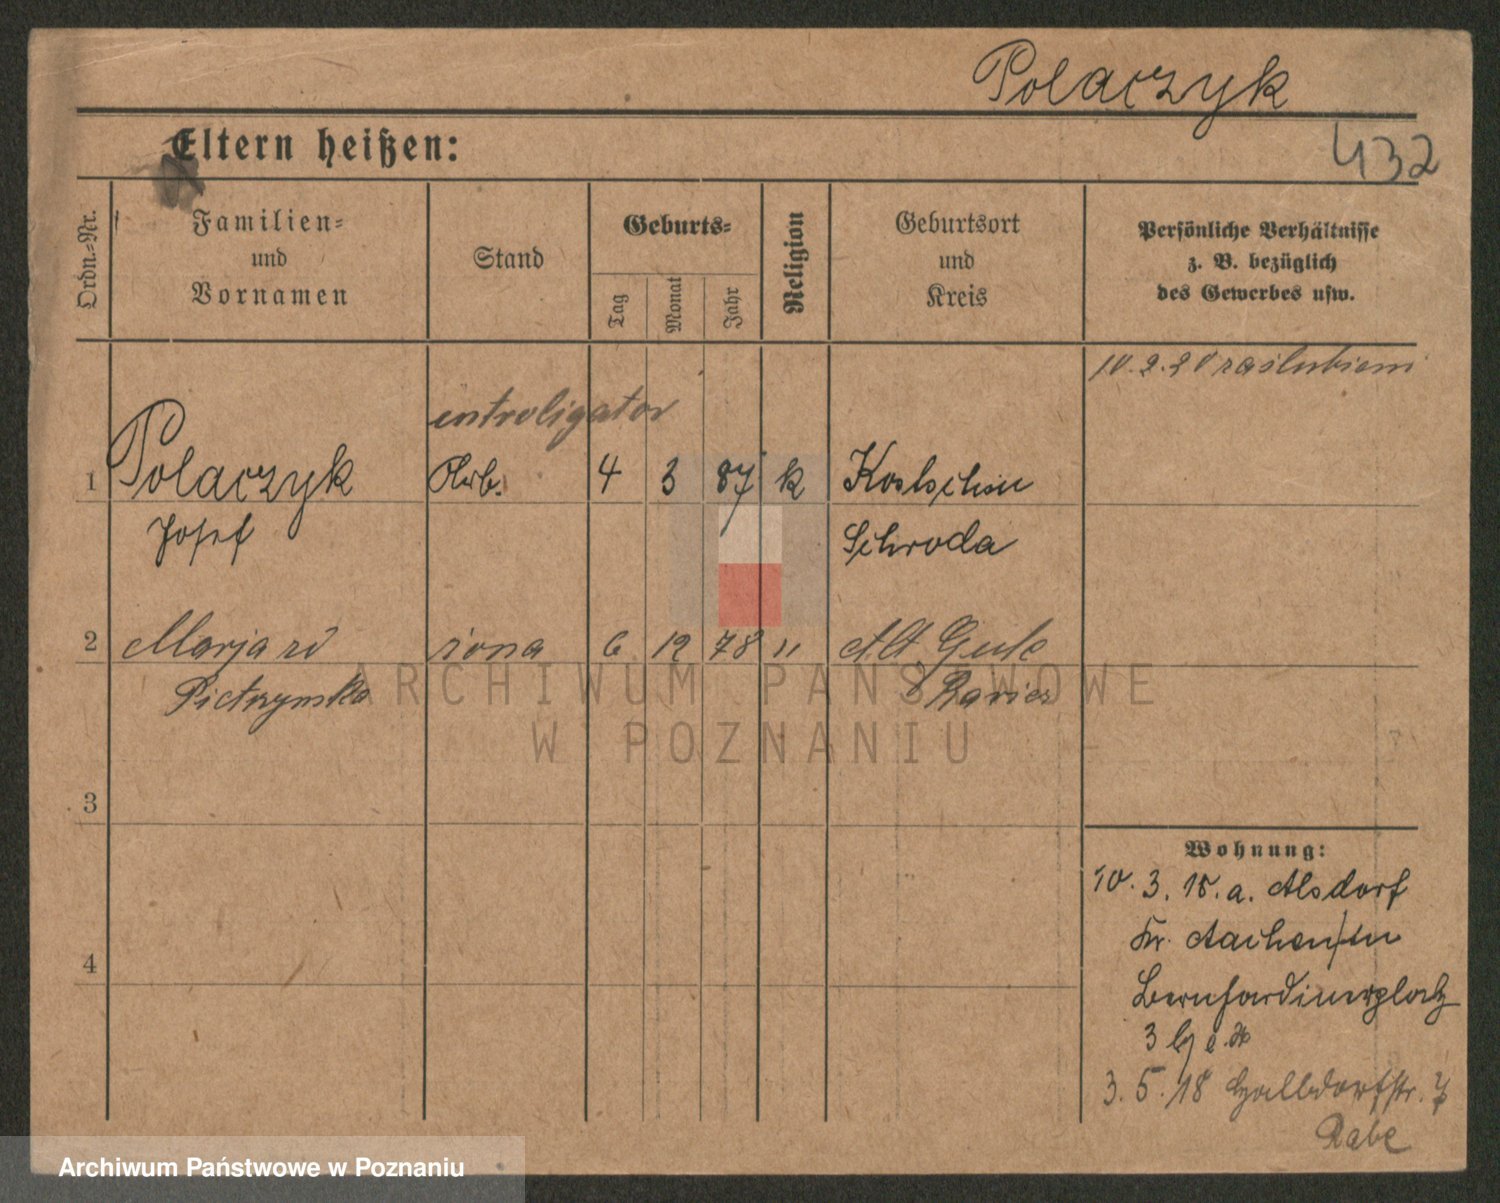 Polaczyk
432
Eltern heißen:
Ordn.-Nr.
Familien-
und
Vornamen
Stand
Geburts-
Tag
Monat
Jahr
Religion
Geburtsort
und
Kreis
Persönliche Verhältnisse
z. B. bezüglich
des Gewerbes usw.
10.2.20 zaślubieni
introligator
1 Polaczyk Arb. 4 3 87 k Kostschin
Josef Schroda
2 Marja zd żona 6 12 78 " Alt Gule
Pietrzynska Rawicz
ARCHIWUM PAŃSTWOWE
W POZNANIU
3
4
Wohnung:
10. 3. 15. a. Alsdorf
Kr. Aachen
Bernhardinerplatz
3
3. 5. 18 Halbdorfstr. 7
Rabe
Archiwum Państwowe w Poznaniu